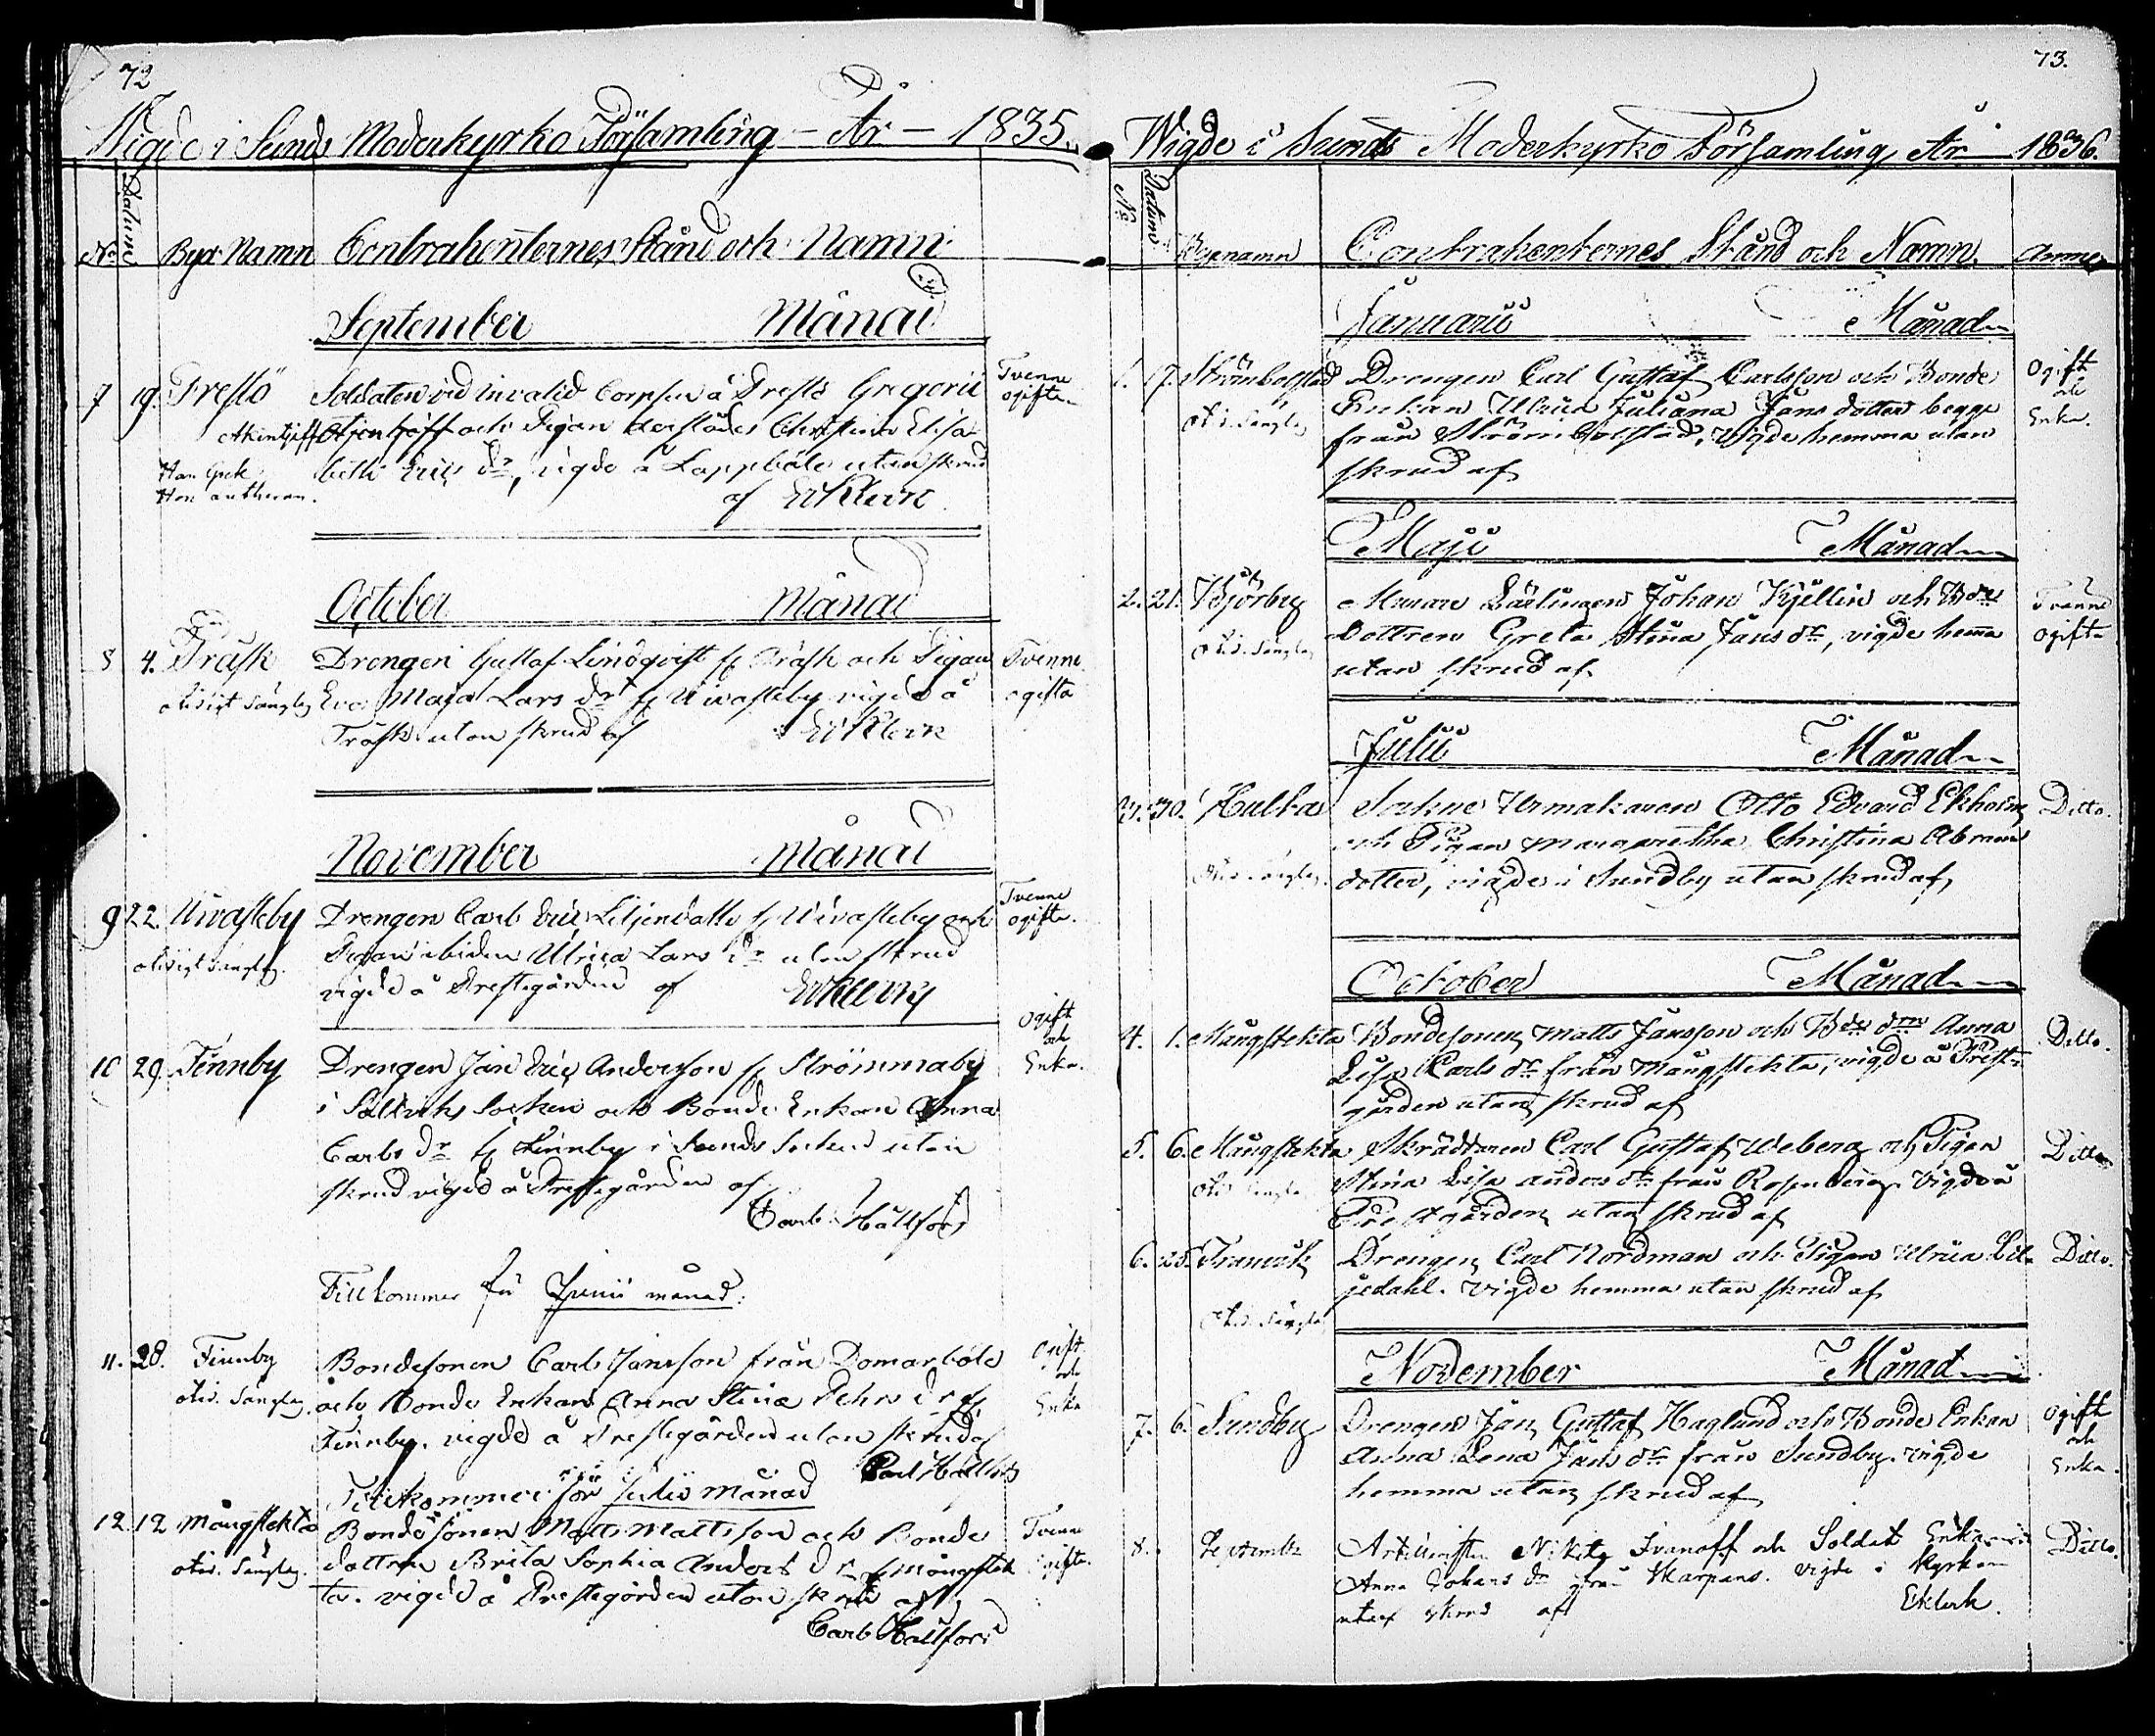 72
Wigde i Sunds Moderkyrko Församling - År - 1835.
No Datum Byx Namn Contrahenternes Stånd och Namn
September Månad
7 19. Prestö Soldaten vid invalid Corpsen å Prestö Gregorii Tvenne
ogifta
Akintjeff och Pigan derstädes Christina Elisa
Han Grek beth Erics dr, vigde å Lappböle utan skrud
Hon Lutheran. af
October Månad
8 4. Träsk Drengen Gustaf Lindqvist f Träsk och Pigan Tvenne
olidigt Sänglag Eva Maja Lars dr f Uivasteby vigde å ogifta
Träsk utan skrud af
November Månad
9 22. Uivasteby Drengen Carl Eric Liljendahl f Uivasteby och Tvenne ogifta.
olidigt Sänglag. Pigan ibidem Ulrica Lars dr utan skrud
vigde å Prestegården af
10 29. Finnby Drengen Jan Eric Andersson f Strömmaby Ogift och Enka.
i Saltviks Socken och Bonde Enkan Anna
Carls dr f Finnby i Sunds Socken utan
skrud vigde å Prestegården af
Carl Hällfors
Tillkommer för Junii månad:
11. 28. Finnby Bondesonen Carl Jansson från Domarböle Ogift
otid. Sänglag. och Bonde Enkan Anna Stina Pehrs dr f och Enka
Finnby. vigde å Prestegården utan skrud af
Carl Hällfors
Tillkommer för Julii Månad
12. 12 Mångstekta Bondesonen Matts Mattsson och Bonde Tvenne
otid. Sänglag. dottren Brita Sophia Anders dr f Mångstek ogifta.
ta. vigde å Prestegården utan skrud af
Carl Hällfors
73.
Wigde i Sunds Moderkyrko Församling År 1836.
No Datum Byenamn Contrahenternes Stånd och Namn.
Januarii Månad
1. 17. Strömbolstad Drengen Carl Gustaf Carlsson och Bonde Ogift
och
otid. Sänglag Enkan Ulrica Juliana Jans dotter begge Enka.
från Strömbolstad, vigde hemma utan
skrud af
Maji Månad
2. 21. Björby Murare Lärlingen Johan Kjellin och Bde Tvenne
otid. Sänglag Dottren Greta Stina Jans dr, vigde hema ogifta
utan skrud af
Julii Månad
3. 30. Hulta Sockne Urmakaren Otto Edvard Ekholm Ditto.
och Pigan Margaretha Christina Abrams
dotter, vigde i Sundby utan skrud af
October Månad
4. 1. Mångstekta Bondesonen Matts Jansson och Bde dn Anna Ditto.
Lisa Carls dr från Mångstekta, vigde å Prest
gården utan skrud af
5. 6. Mångstekta Skräddaren Carl Gustaf Weberg och Pigan Ditto
Stina Lisa Anders dr från Rosenberg. Vigde å
Prestgården utan skrud af
6. 25. Tranvik Drengen Carl Nordman och Pigan Ulrica Lil- Ditto.
jedahl. Vigde hemma utan skrud af
otid. Sänglag
November Månad
7. 6. Sundby Drengen Jan Gustaf Haglund och Bonde Enkan Ogift
och
Anna Lena Jans dr från Sundby. vigde Enka.
hemma utan skrud af
8. September Artilleristen Nikita Ivanoff och Soldat Enkan Ditto.
Anna Johans dr från Skarpans. Vigde i Kyrkan
utan skrud af Eklerk.